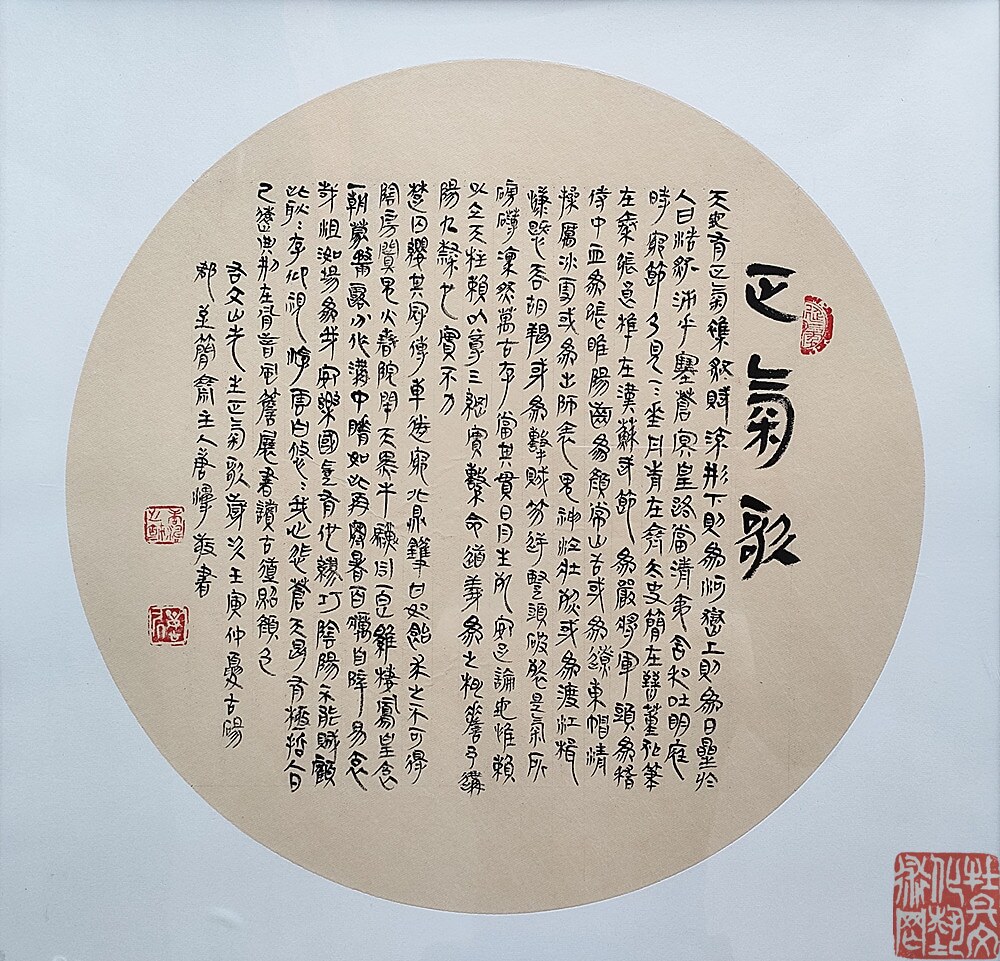 正氣歌
天地有正氣雜然賦流形下則為河嶽上則為日星於
人曰浩然沛乎塞蒼冥皇路當清夷含和吐明庭
時窮節乃見一一垂丹青在齊太史簡在晉董狐筆
在秦張良椎在漢蘇武節為嚴將軍頭為嵇
侍中血為張睢陽齒為顏常山舌或為遼東帽清
操厲冰雪或為出師表鬼神泣壯烈或為渡江楫
慷慨吞胡羯或為擊賊笏逆豎頭破裂是氣所
磅礴凜然萬古存當其貫日月生死安足論地維賴
以立天柱賴以尊三綱實繫命道義為之根嗟予遘
陽九隸也實不力
楚囚纓其冠傳車送窮北鼎鑊甘如飴求之不可得
陰房闃鬼火春院閉天黑牛驥同一皂雞棲鳳皇食
一朝蒙霧露分作溝中瘠如此再寒暑百癘自辟易哀
哉沮洳場為我安樂國豈有他繆巧陰陽不能賊顧
此耿耿存仰視浮雲白悠悠我心悲蒼天曷有極哲人日
已遠典刑在夙昔風簷展書讀古道照顏色
右文山先生正氣歌歲次壬寅仲夏古陽
都簡齋主人唐敬書
牡丹文化藝術网